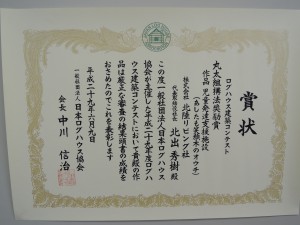 賞状
ログハウス建築コンテスト
丸太組構法奨励賞
作品 児童発達支援施設
(あしたも笑顔木のオウチ)
株式会社 北陸リビング社
代表取締役社長 北出 秀樹 殿
この度一般社団法人日本ログハウス
協会が主催した平成二十九年度ログハ
ウス建築コンテストにおいて貴殿の作
品は厳正な審査の結果頭書の成績を
おさめたのでこれを表彰します
平成二十九年六月九日
一般社団法人 日本ログハウス協会
会長 中川 信治